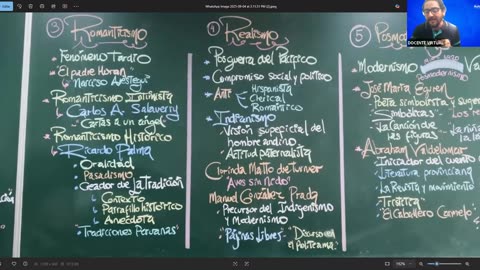 WhatsApp Image 2025-09-04 at 2.13.31 PM (2).jpeg
DOCENTE VIRTUAL
3 Romanticismo
Fenómeno Tardío
El padre Horan
Narciso Aréstegui
Romanticismo Intimista
Carlos A. Salaverry
Cartas a un ángel
Romanticismo Histórico
Ricardo Palma
Oralidad
Pasadismo
Creador de la Tradición
Contexto
Parrafillo histórico
Anécdota
"Tradiciones Peruanas"
Realismo
Posguerra del Pacífico
Compromiso social y político
Anti
Hispanista
Clerical
Romántico
Indianismo
Visión superficial del hombre andino
Actitud paternalista
Clorinda Matto de Turner
Aves sin Nido
Manuel González Prada
Precursor del Indigenismo y Modernismo
"Páginas Libres"
"Discurso en el Politeama"
5
Modernismo
Posmodernismo
José María Eguren
Poeta simbolista y
"Simbólicas"
La canción de las figuras
Abraham Valdelomar
Iniciador del cuento
Literatura provinciana
La Revista y movimiento
"Tristitia"
"El Caballero Carmelo"